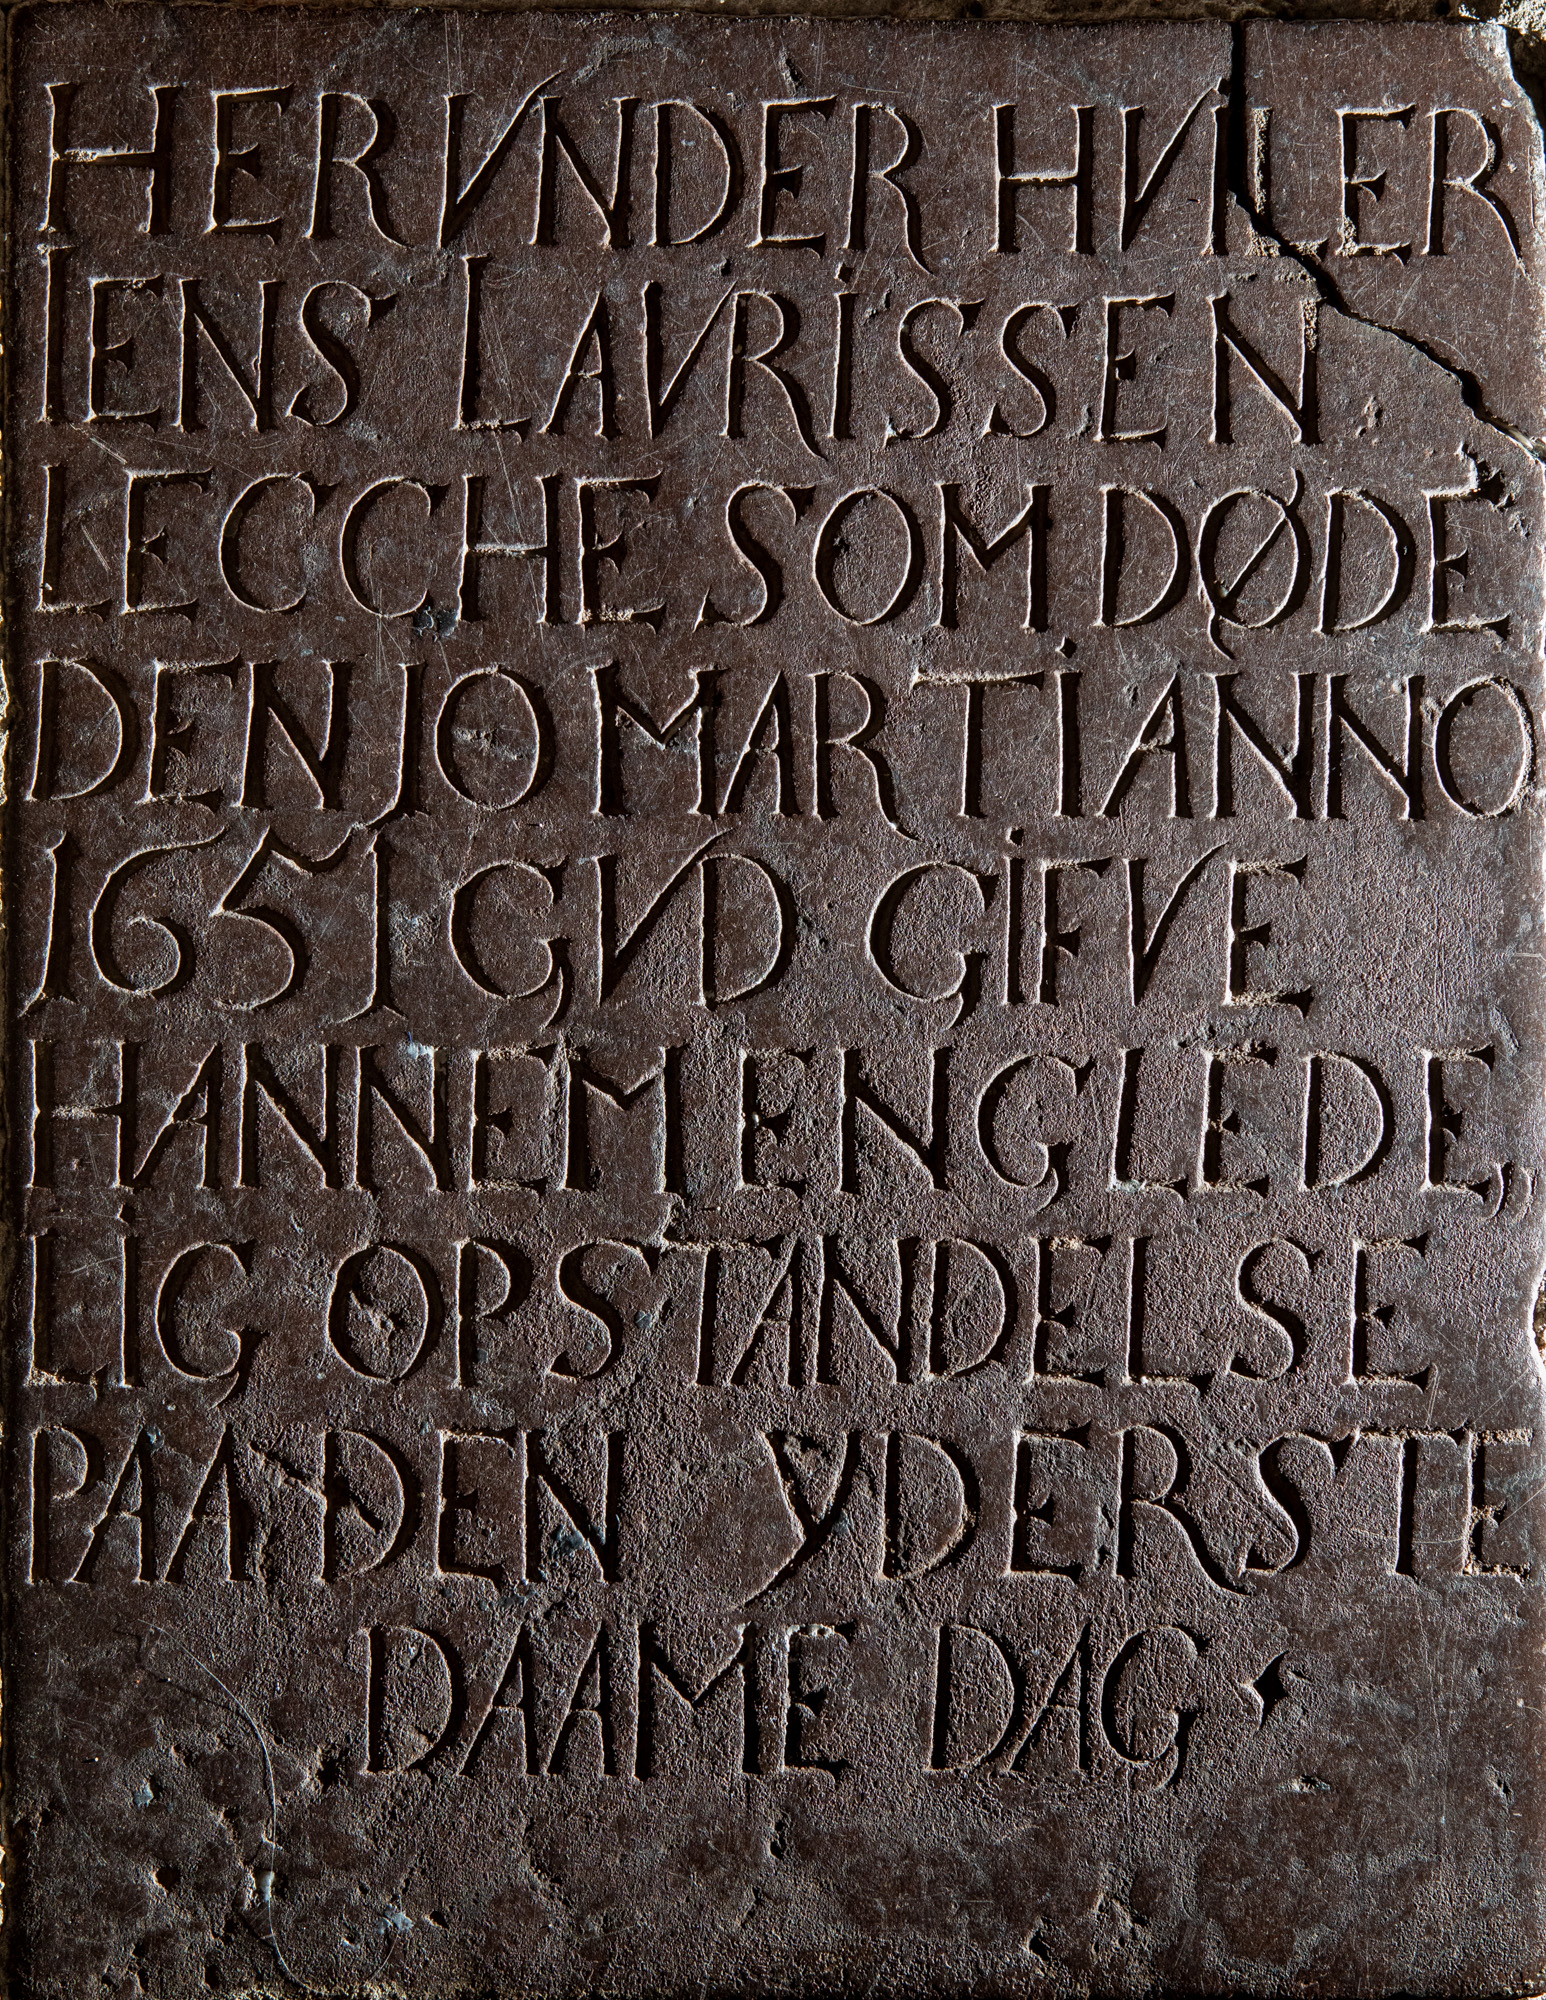 HER VNDER HVILER
IENS LAVRISSEN
LECCHE SOM DØDE
DEN 10 MARTI ANNO
1651 GVD GIFVE
HANNEM EN GLEDE„
LIG OPSTANDELSE
PAA DEN YDERSTE
DAAME DAG ·